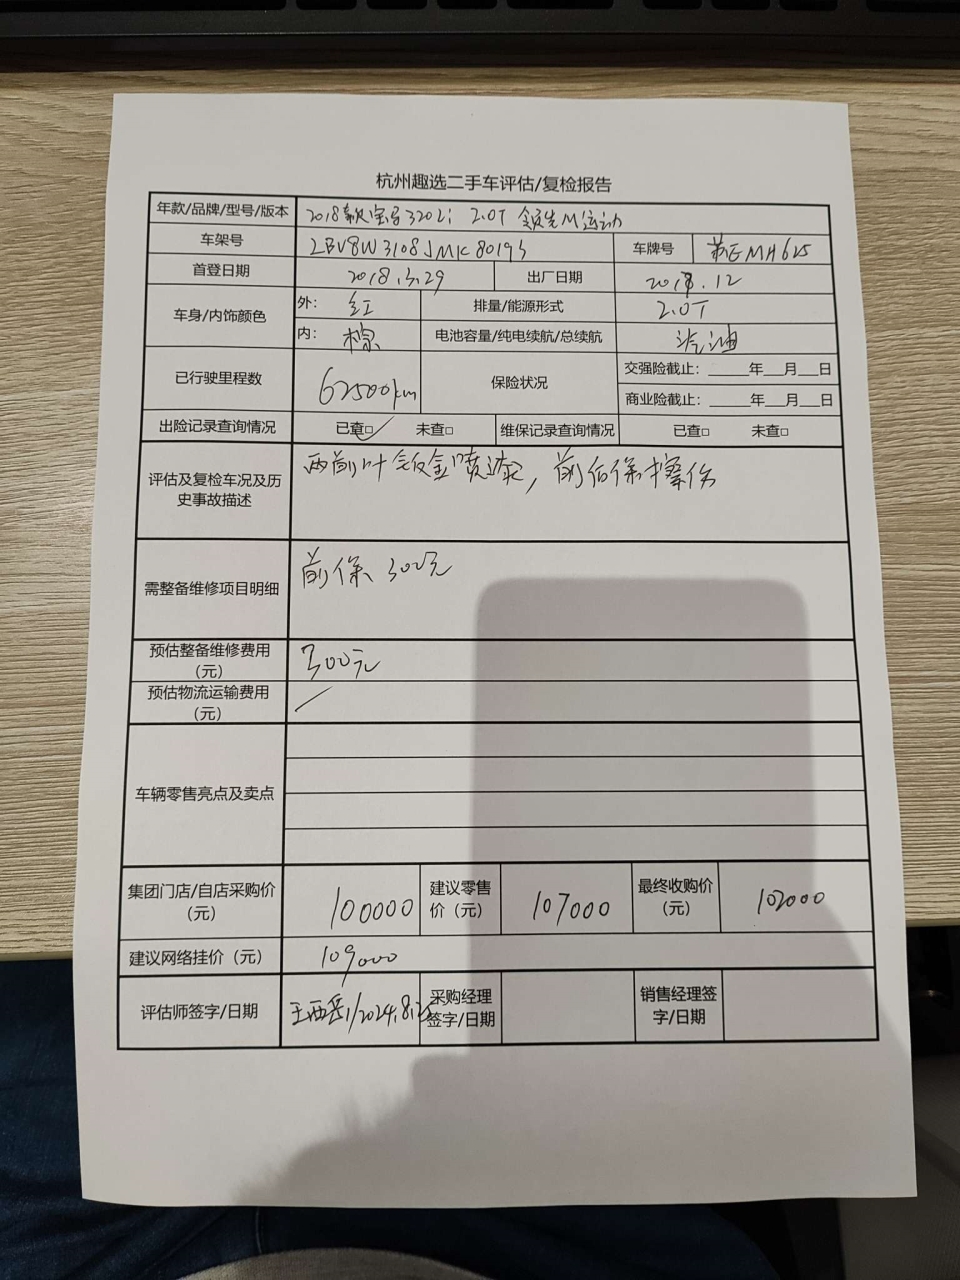 杭州趣选二手车评估/复检报告
年款/品牌/型号/版本 2018款宝马320Li 2.0T 领先M运动
车架号 LBV8W3108JMK80193 车牌号 苏EMH615
首登日期 2018.3.29 出厂日期 2017.12
车身/内饰颜色 外: 红 排量/能源形式 2.0T
内: 棕 电池容量/纯电续航/总续航 汽油
已行驶里程数 62500km 保险状况 交强险截止: ____年__月__日
商业险截止: ____年__月__日
出险记录查询情况 已查□ ✓ 未查□ 维保记录查询情况 已查□ 未查□
评估及复检车况及历史事故描述 两前叶钣金喷漆, 前后保擦伤
需整备维修项目明细 前保 300元
预估整备维修费用(元) 300元
预估物流运输费用(元) /
车辆零售亮点及卖点
集团门店/自店采购价(元) 100000 建议零售价(元) 107000 最终收购价(元) 102000
建议网络挂价(元) 109000
评估师签字/日期 王西岳/2024.8. 采购经理签字/日期 销售经理签字/日期